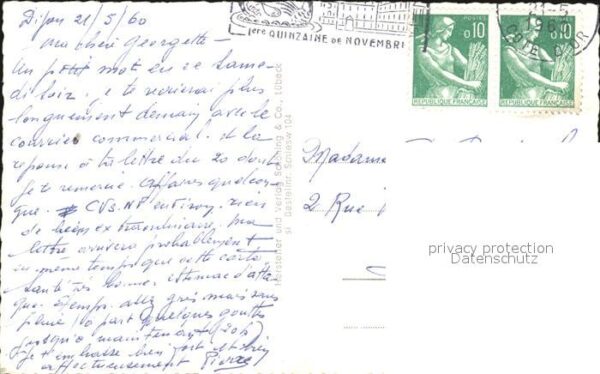 Dijon 21/5/60
ma chère Georgette
Un petit mot en ce same-
di soir, je t'écrirai plus
longuement demain avec le
courrier commercial. et la
reponse à ta lettre du 20 dont
je te remercie. affaires quelcon-
que. rien
de bien extraordinaire, ma
lettre arrivera probablement
en même temps que cette carte
santé très bonne, estomac
que temps. assez gris mais sans
pluie, à part quelques gouttes
jusqu'à maintenant (20h)
Je t'embrasse bien fort et bien
affectueusement Pierre
1ere QUINZAINE DE NOVEMBRE
Hersteller und Verlag Schöning & Co., Lübeck
Schlesw 104
POSTES
0,10
REPUBLIQUE FRANÇAISE
POSTES
0,10
REPUBLIQUE FRANÇAISE
21-5
COTE D'OR
Madame
2 Rue
privacy protection
Datenschutz